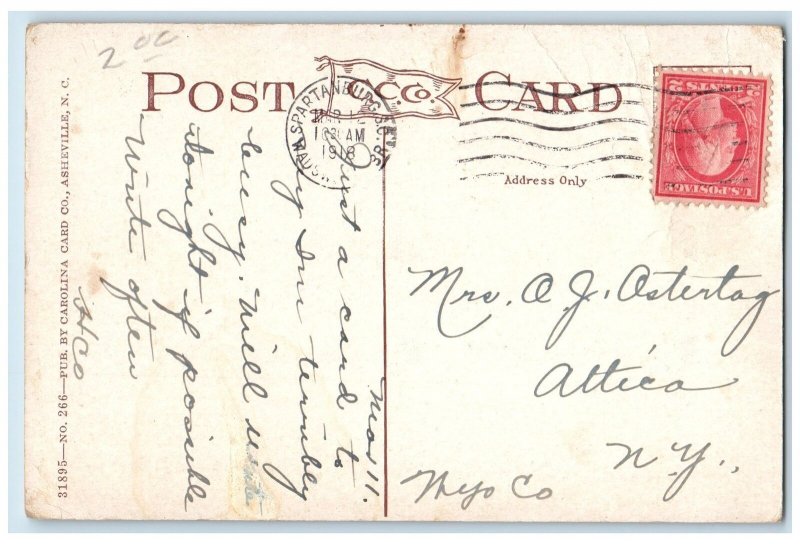 2 00
POST CARD
C.C.Co.
SPARTANBURG, S.C.
MAR 12
10 30 AM
1918
WADSW
BR.
Address Only
U.S. POSTAGE
2 2
Mar 11.
Just a card to
say I'm terribly
busy. Will write
tonight if possible
Write often
Mrs. O. J. Ostertag
Attica
N.Y.,
Wyo Co
31895—NO. 266—PUB. BY CAROLINA CARD CO., ASHEVILLE, N. C.